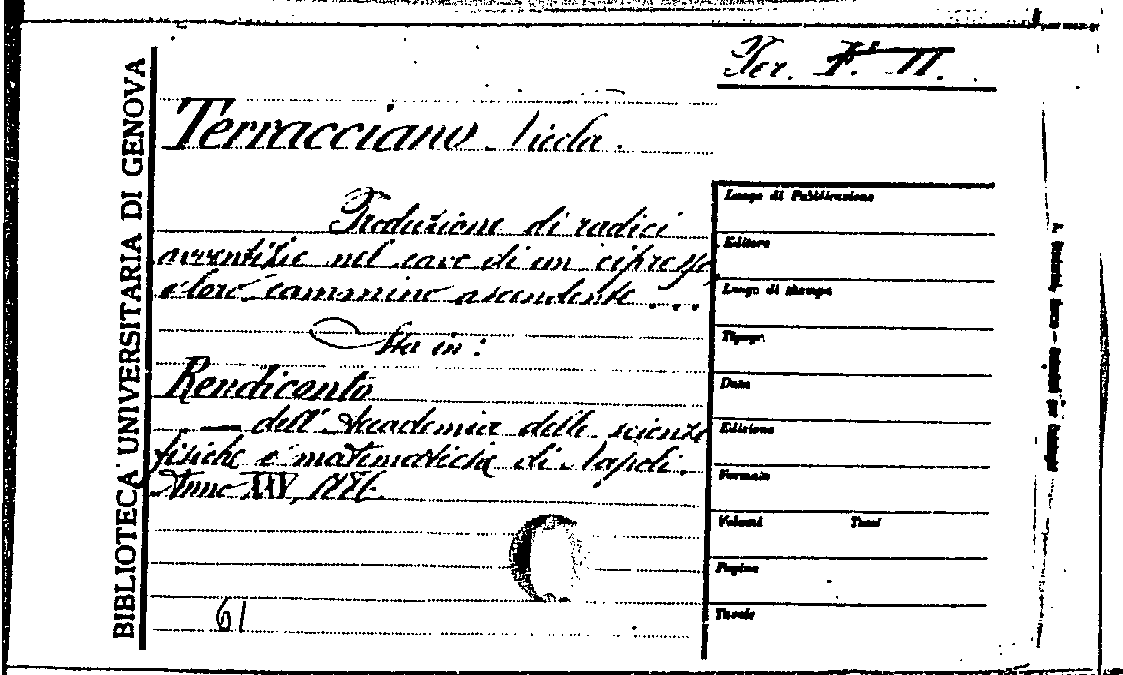 Per. F. II.
BIBLIOTECA UNIVERSITARIA DI GENOVA
Terracciano Nicola.
Produzione di radici
avventizie nel cavo di un cipresso,
e loro cammino ascendente ...
Sta in:
Rendiconto
— dell'Accademia delle scienze
fisiche e matematiche di Napoli.
Anno XXV, 1886.
61
Luogo di Pubblicazione
Editore
Luogo di stampa
Tipogr.
Data
Edizione
Formato
Volumi Tomi
Pagine
Tavole